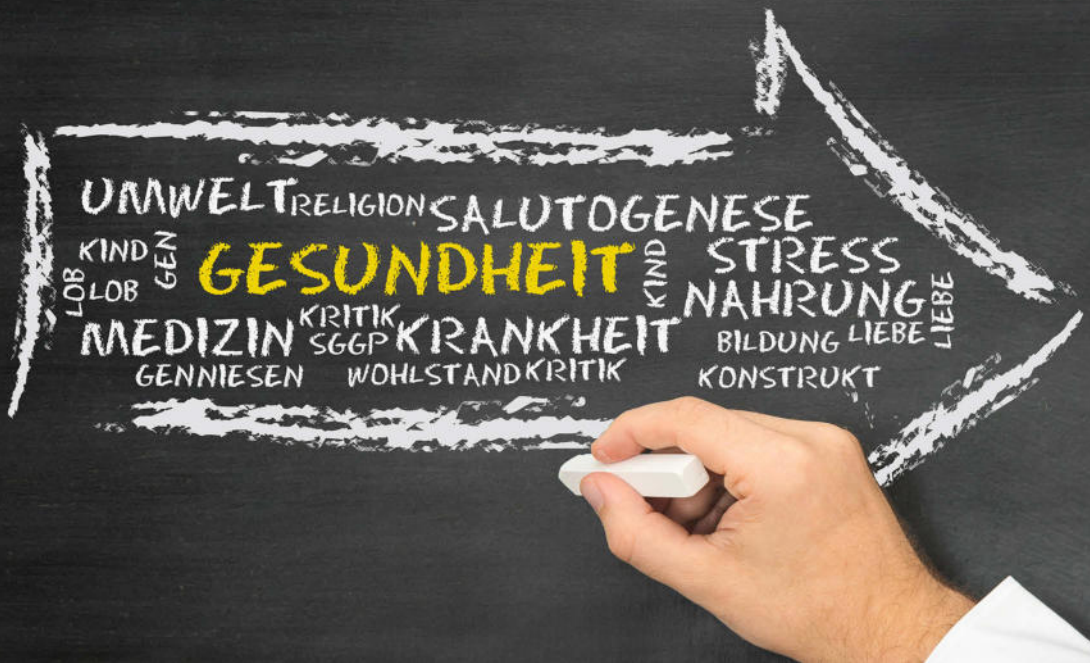 UMWELT RELIGION SALUTOGENESE
KIND GEN GESUNDHEIT KIND STRESS
LOB LOB NAHRUNG LIEBE
MEDIZIN KRITIK KRANKHEIT BILDUNG LIEBE
SGGP
GENNIESEN WOHLSTAND KRITIK KONSTRUKT